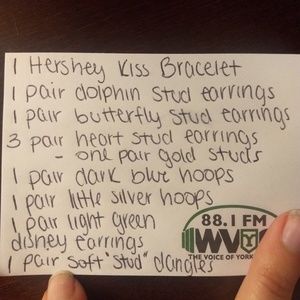 1 Hershey Kiss Bracelet
1 pair dolphin stud earrings
1 pair butterfly stud earrings
3 pair heart stud earrings
- one pair gold studs
1 pair dark blue hoops
1 pair little silver hoops
1 pair light green
disney earrings
1 pair soft "stud" dangles
88.1 FM
WVY
THE VOICE OF YORK